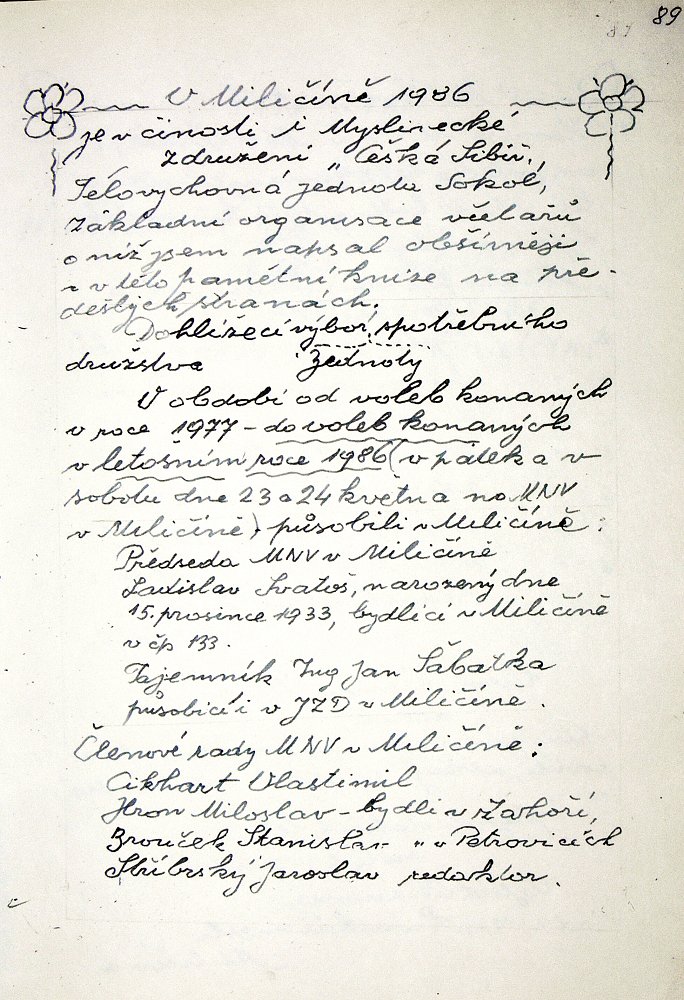 89
V Miličíně 1986
je v činosti i Myslivecké
združení „Češká Sibiř„,
Tělovychovná jednota Sokol,
Základní organisace včelařů
o níž jsem napsal obšírněji
v této pamětní knize na pře-
dešlých stranách.
Dohlížecí výbor spotřebního
družstva Jednoty
V období od voleb konaných
v roce 1977 - do voleb konaných
v letošním roce 1986 (v pátek a v
sobotu dne 23 a 24 května na MNV
v Miličíně) působili v Miličíně:
Předseda MNV v Miličíně
Ladislav Svatoš, narozený dne
15. prosince 1933, bydlící v Miličíně
v čp 133.
Tajemník Ing Jan Šabatka
působící i v JZD v Miličíně.
Členové rady MNV v Miličíně:
Cikhart Vlastimil
Hron Miloslav - bydlí v Záhoří,
Brouček Stanislav - „ v Petrovicích
Stříbrský Jaroslav redaktor.